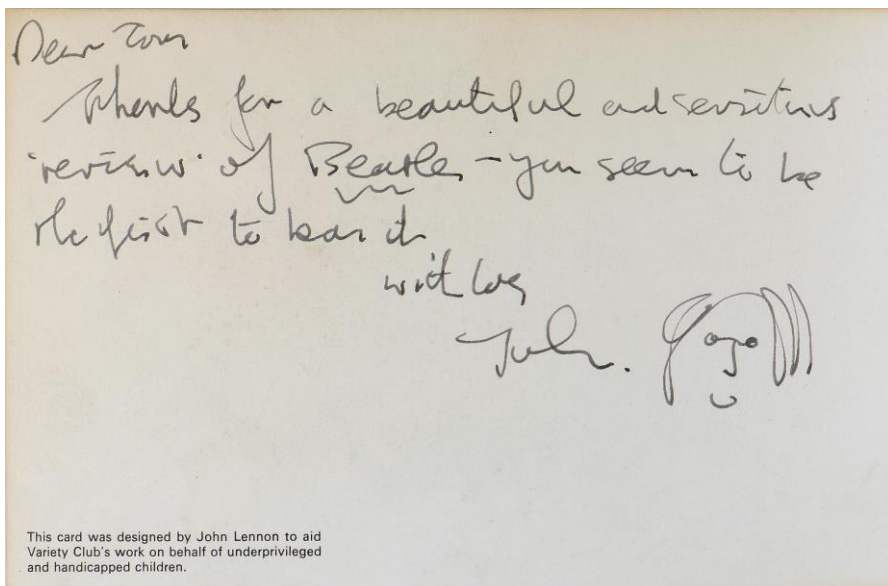 Dear Tom
Thanks for a beautiful and sensitive
'review' of Beatles – you seem to be
the first to it
with love
John.
This card was designed by John Lennon to aid
Variety Club's work on behalf of underprivileged
and handicapped children.